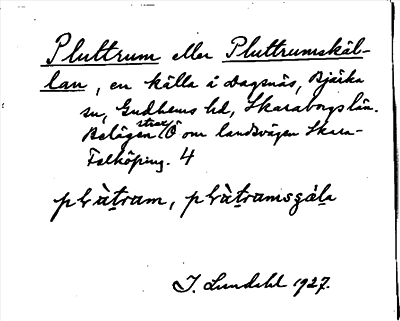 Pluttrum eller Pluttrumskäl-
lan, en källa å Dagsnäs, Bjärka
sn, Gudhems hd, Skaraborgs län.
Belägen strax Ö om landsvägen Skara-
Falköping. 4
J. Lundahl 1927.